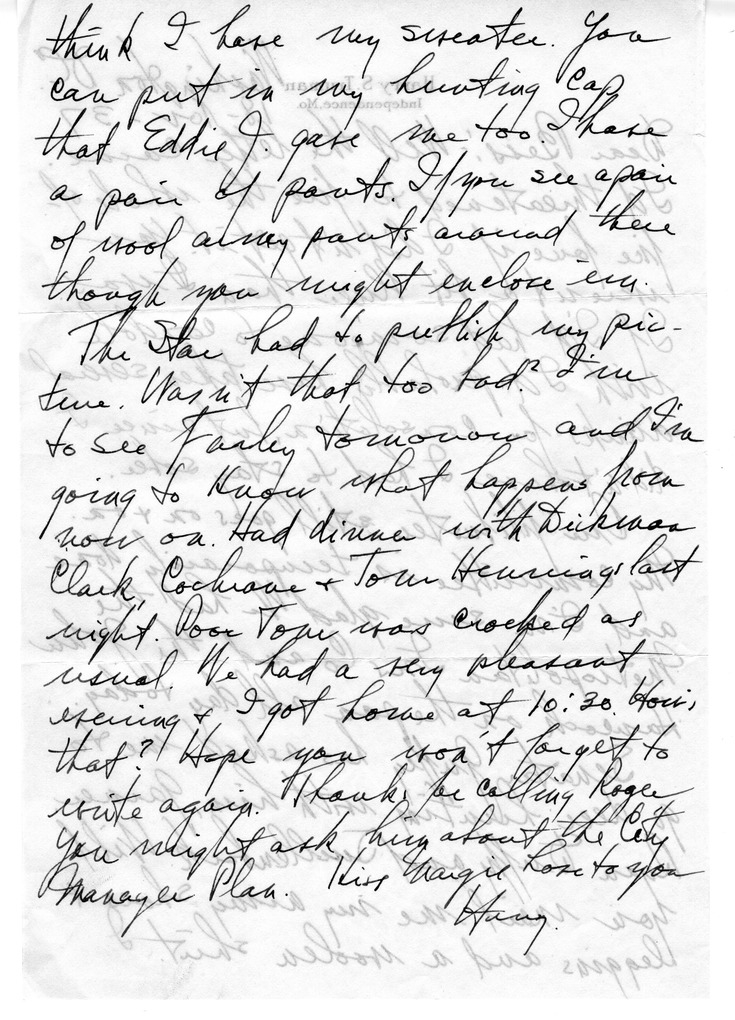 think I have my sweater. You
can put in my hunting cap
that Eddie J. gave me too. I have
a pair of pants. If you see a pair
of wool army pants around there
though you might enclose 'em.
The Star had to publish my pic-
ture. Wasn't that too bad? I'm
to see Farley tomorrow and I'm
going to know what happens from
now on. Had dinner with Dickman
Clark, Cochrane & Tom Hennings last
night. Poor Tom was crocked as
usual. We had a very pleasant
evening & I got home at 10:30. How's
that? Hope you won't forget to
write again. Thanks for calling Roger
You might ask him about the City
Manager Plan. Kiss Margie love to you
Harry.
Harry S. Truman
Independence, Mo.